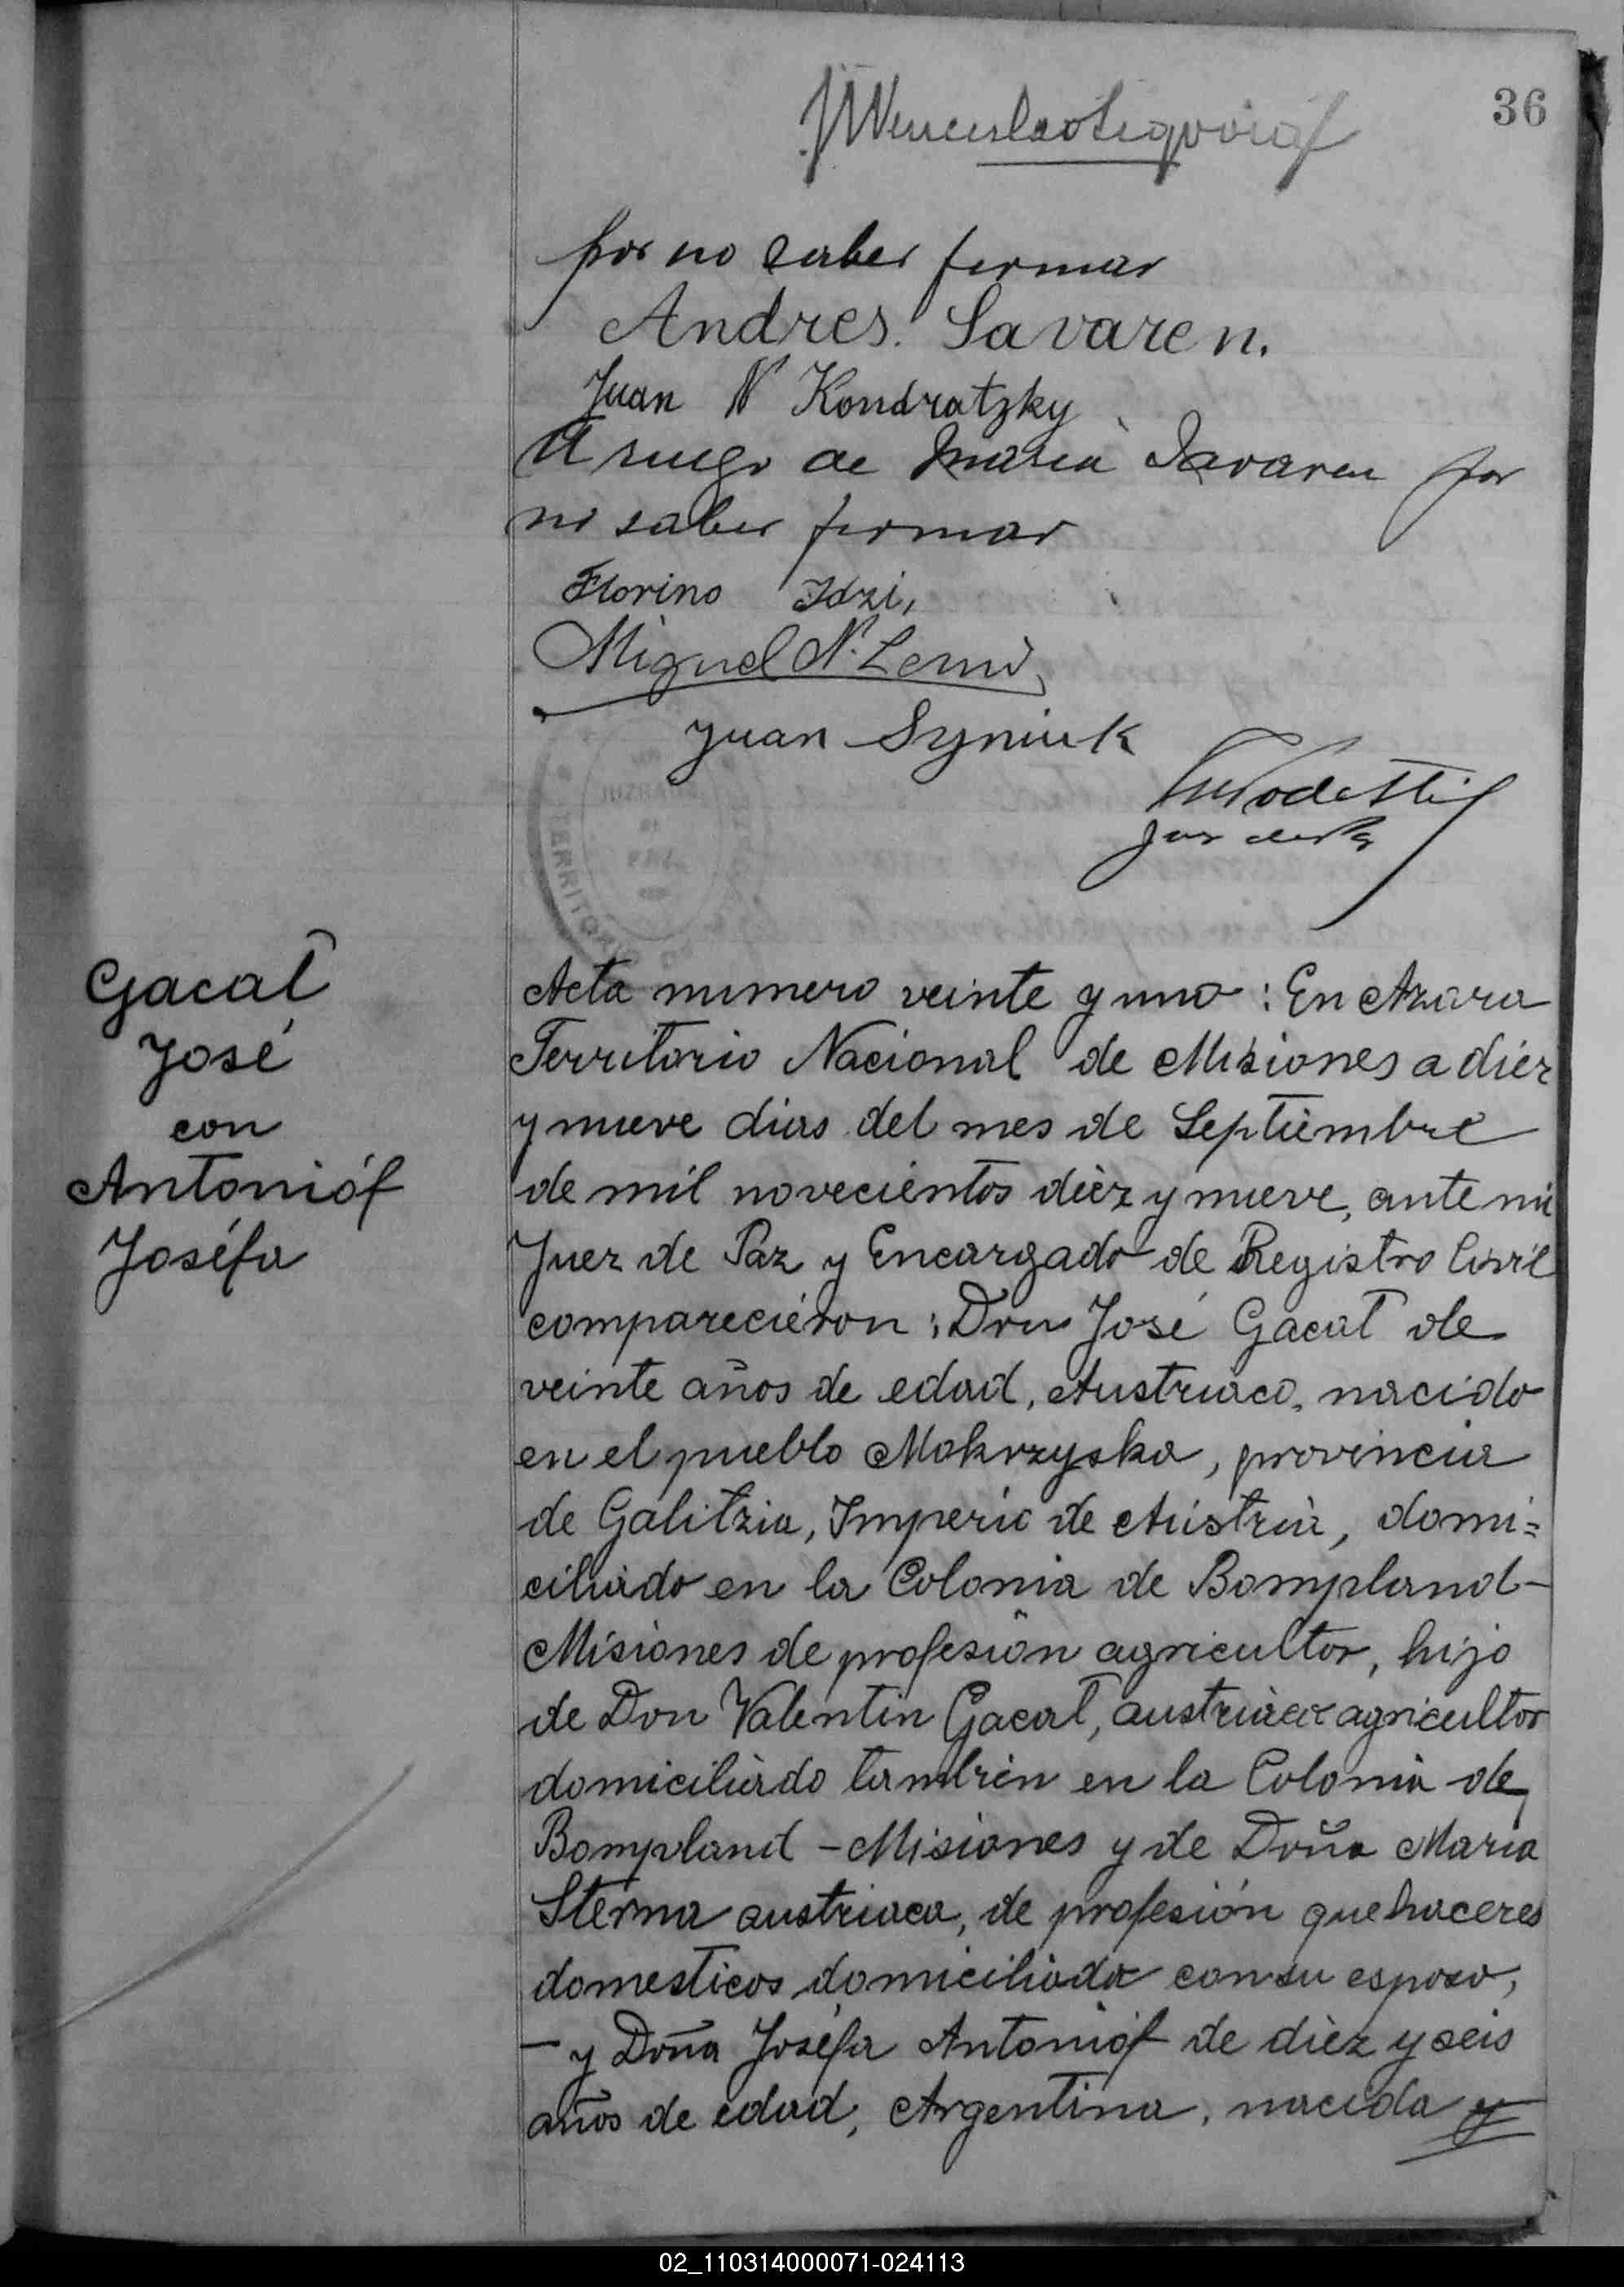 36
por no saber firmar
Andres. Savaren.
Juan N Kondratzky
A ruego de Maria Savaren por
no saber firmar
Florino Idzi,
Miguel N. Lerni
Juan Syniuk
Juez de Paz
TERRITORIO
Gacat
José
con
Antonióf
Joséfa
Acta numero veinte y uno: En Azara
Territorio Nacional de Misiones a diéz
y nueve dias del mes de Septiembre
de mil novecientos diéz y nueve, ante mi
Juez de Paz y Encargado de Registro Civil
compareciéron: Don José Gacat de
veinte años de edad, Austriaco, nacido
en el pueblo Mokrzyska, provincia
de Galitzia, Imperio de Austria, domi=
ciliado en la Colonia de Bompland-
Misiones de profesión agricultor, hijo
de Don Valentin Gacat, austriaco agricultor
domiciliado tambien en la Colonia de
Bompland - Misiones y de Doña Maria
Sterna austriaca, de profesión quehaceres
domesticos domiciliada con su esposo,
- y Doña Joséfa Antoniof de diéz y seis
años de edad, Argentina, nacida y
02_110314000071-024113